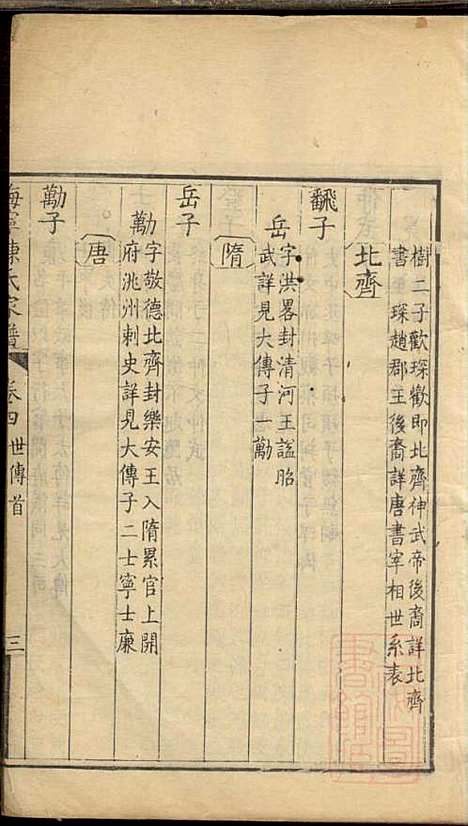 樹二子歡琛歡即北齊神武帝後裔詳北齊
書琛趙郡王後裔詳唐書宰相世系表
北齊
翻子
岳字洪畧封清河王謚昭
武詳見大傳子一勱
隋
岳子
勱字敬德北齊封樂安王入隋累官上開
府洮州刺史詳見大傳子二士寧士廉
唐
勱子
海寧陳氏家譜 卷四 世傳首 三